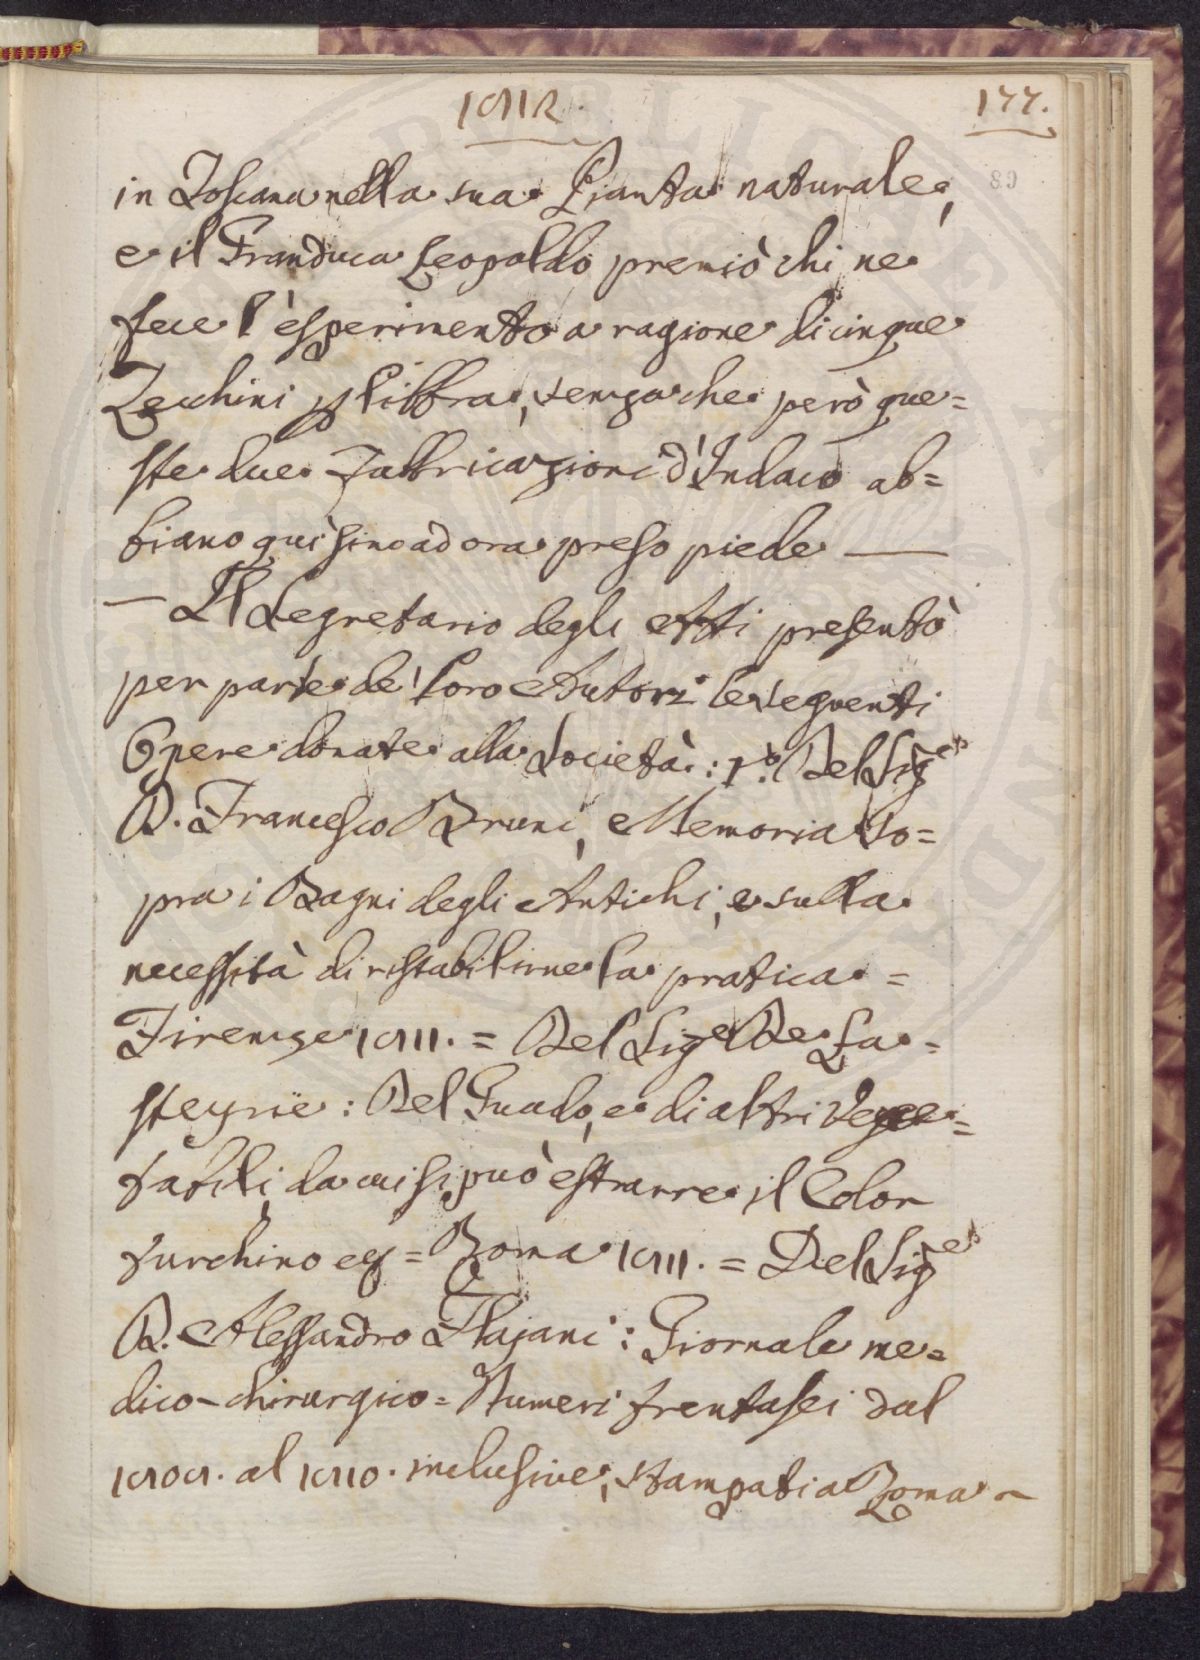 1812.
177.
89
in Toscana nella sua Pianta naturale,
e il Granduca Leopoldo premiò chi ne
fece l'esperimento a ragione di cinque
Zecchini p libbra, senza che però que=
ste due Fabbricazioni d'Indaco ab=
biano quì sino ad ora preso piede —
— Il Segretario degli Atti presentò
per parte de' loro Autori le seguenti
Opere donate alla Società: 1.º Del Sig.re
D. Francesco Bruni, Memoria so=
pra i Bagni degli Antichi, e sulla
necessità di ristabilirne la pratica =
Firenze 1811. = Del Sig.e De La=
steyrie: Del Guado, e di altri Vege=
tabili, da cui si può estrarre il Color
turchino ec = Roma 1811. = Del Sig.re
D. Alessandro Flajani: Giornale me=
dico-chirurgico = Numeri trentasei dal
1808. al 1810. inclusive, stampati a Roma ~